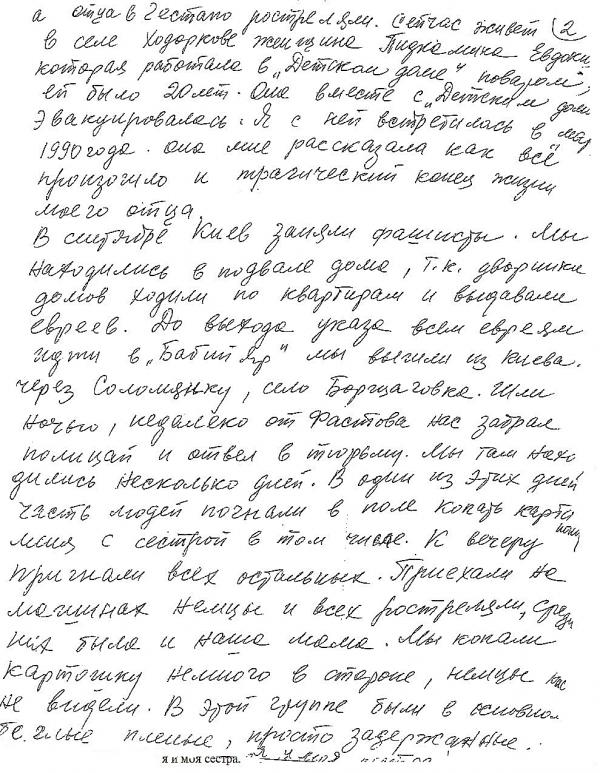 а отца в Гестапо рострелям. Сейчас живет 2
в селе Ходоркове женщина Пидкамина Евдоки
которая работала в „Детском доме" поваром,
ей было 20 лет. Она вместе с „Детским дом
Эвакуировалась. Я с ней встретилась в мае
1990 года. Она мне рассказала как всё
произошло и трагический конец жизни
моего отца.
В сентябре Киев заняли фашисты. Мы
находились в подвале дома, т.к. дворники
домов ходили по квартирам и выдавали
евреев. До выхода указа всем евреям
идти в „Бабий Яр" мы вышли из Киева.
через Соломянку, село Борщаговка. Шли
ночью, недалеко от Фастова нас забрал
полицай и отвел в тюрьму. Мы там нахо
дились несколько дней. В один из этих дней
часть людей погнали в поле копать карто
меня с сестрой в том числе. К вечеру
пригнали всех остальных. Приехали на
машинах немцы и всех рострелям, среди
них была и наша мама. Мы копали
картошку немного в стороне, немцы нас
не видели. В этой группе были в основном
беглые пленые, просто задержанные.
я и моя сестра.